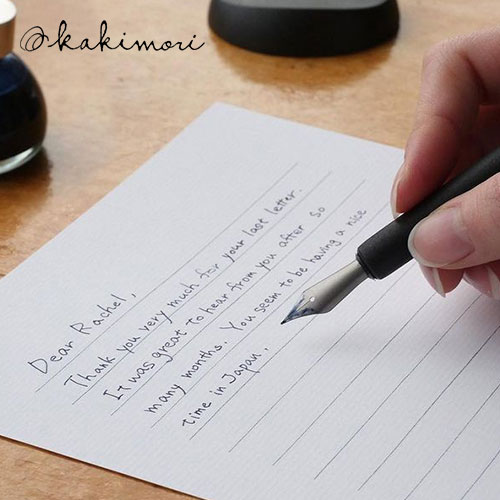 @kakimori
Dear Rachel,
Thank you very much for your last letter.
It was great to hear from you after so
many months. You seem to be having a nice
time in Japan.